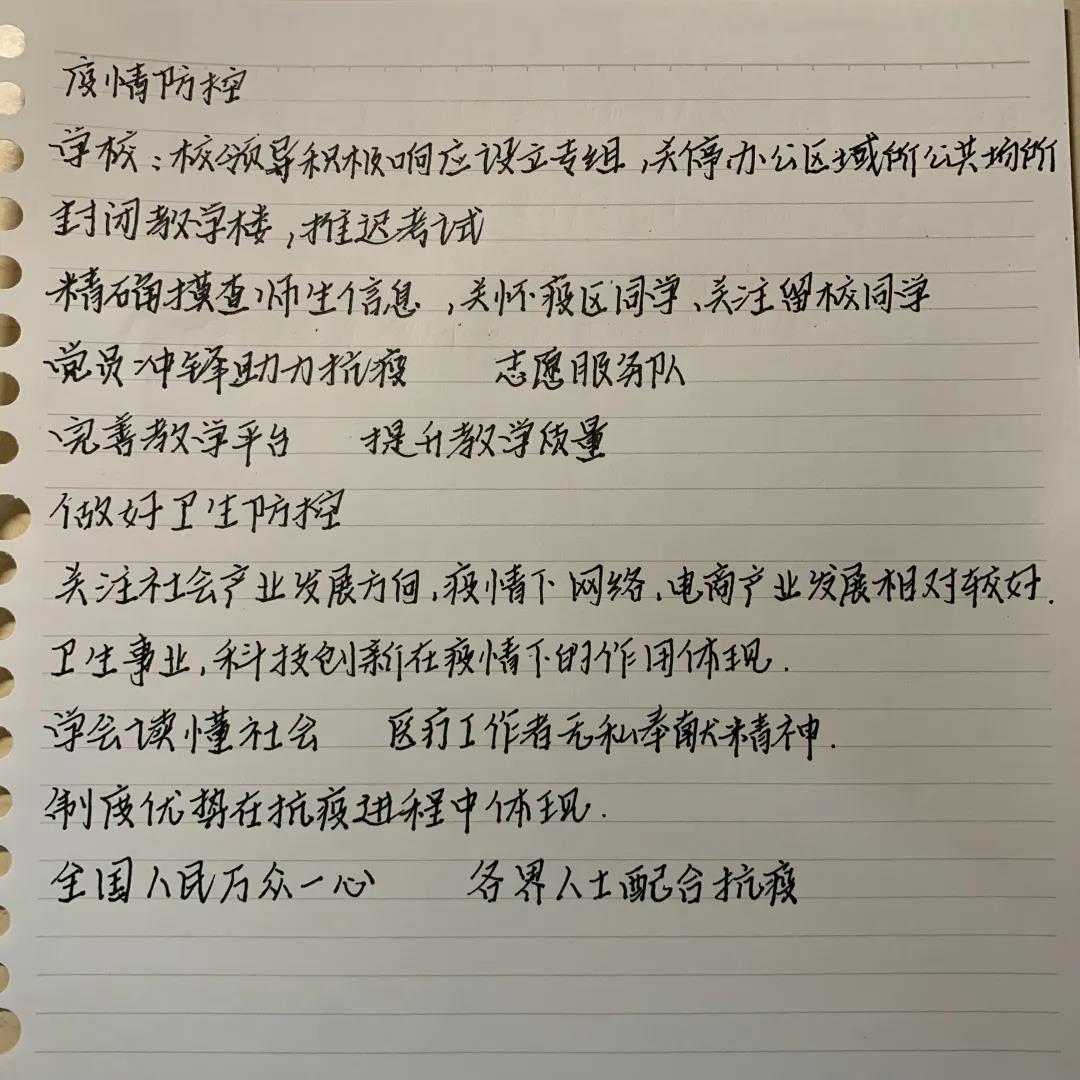 疫情防控
学校：校领导积极响应设立专组，关停办公区域所公共场所
封闭教学楼，推迟考试
精确摸查师生信息，关怀疫区同学、关注留校同学
党员冲锋助力抗疫 志愿服务队
完善教学平台 提升教学质量
做好卫生防控
关注社会产业发展方向，疫情下网络，电商产业发展相对较好.
卫生事业，科技创新在疫情下的作用体现.
学会读懂社会 医疗工作者无私奉献精神.
制度优势在抗疫进程中体现.
全国人民万众一心 各界人士配合抗疫